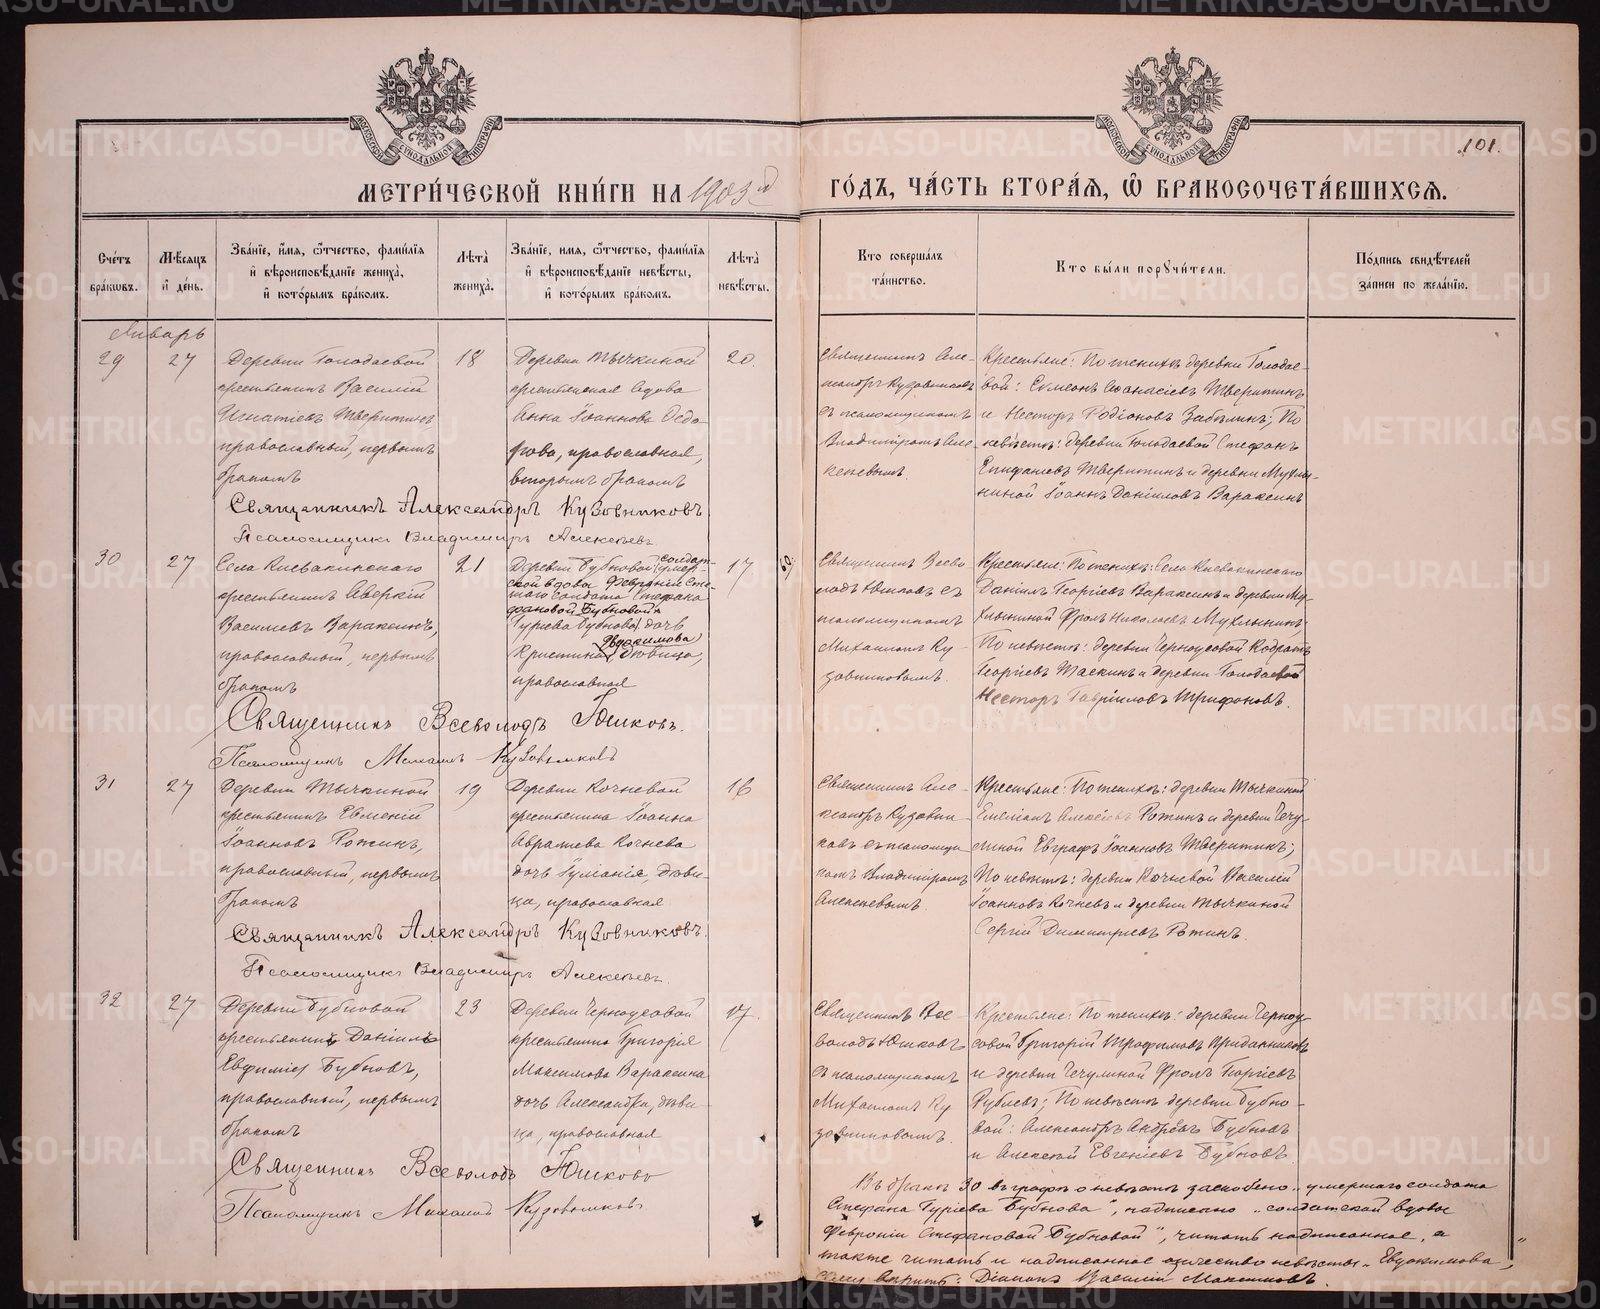 101.
МЕТРИ́ЧЕСКОЙ КНИ́ГИ НА 1903й
ГО́ДЪ, ЧА́СТЬ ВТОРА́Я, Ѡ҆ БРАКОСОЧЕТА́ВШИХСЯ.
Сче́тъ бра́ковъ.
Мѣ́сяцъ и҆ де́нь.
Зва́нїе, и҆́мя, ѻ҆́тчество, фами́лїя и҆ вѣроисповѣ́данїе жениха̀, и҆ кото́рымъ бра́комъ.
Лѣ́та жениха̀.
Зва́нїе, и҆́мя, ѻ҆́тчество, фами́лїя и҆ вѣроисповѣ́данїе невѣ́сты, и҆ кото́рымъ бра́комъ.
Лѣ́та невѣ́сты.
Кто̀ соверша́лъ та́инство.
Кто̀ бы́ли порꙋчи́тели.
По́дпись свидѣ́телей за́писи по жела́нїю.
Январь
29
27
Деревни Голодаевой
крестьянинъ Василій
Игнатіевъ Тверитинъ
православный, первымъ
бракомъ
18
Деревни Тычкиной
крестьянская вдова
Анна Іоаннова Ѳедо-
рова, православная,
вторымъ бракомъ
20.
Священникъ Але-
ксандръ Кузовниковъ
съ псаломщикомъ
Владиміромъ Але-
ксѣевымъ.
Крестьяне: По женихѣ деревни Голодае-
вой: Симеонъ Аѳанасіевъ Тверитинъ
и Несторъ Родіоновъ Забѣлинъ; По
невѣстѣ: деревни Голодаевой Стефанъ
Епифановъ Тверитинъ и деревни Мухлы-
ниной Іоаннъ Даніиловъ Вараксинъ
Священникъ Александръ Кузовниковъ.
Псаломщикъ Владиміръ Алексѣевъ.
30
27
Села Клевакинскаго
крестьянинъ Аверкій
Василіевъ Вараксинъ,
православный, первымъ
бракомъ
21
Деревни Бубновой (умер-
солдат-
ской вдовы Февроніи Сте-
шаго солдата Стефана
фановой Бубновой
Гуріева Бубнова) дочь
Евдокимова
Кристина, дѣвица,
православная
17
Священникъ Всево-
лодъ Юшковъ съ
псаломщикомъ
Михаиломъ Ку-
зовниковымъ.
Крестьяне: По женихѣ: Села Клевакинскаго
Даніилъ Георгіевъ Вараксинъ и деревни Му-
хлыниной Фролъ Николаевъ Мухлынинъ;
По невѣстѣ: деревни Черноусовой Кодратъ
Георгіевъ Таскинъ и деревни Голодаевой
Несторъ Гавріиловъ Трифоновъ.
Священникъ Всеволодъ Юшковъ.
Псаломщикъ Михаилъ Кузовниковъ
31
27
Деревни Тычкиной
крестьянинъ Евменій
Іоанновъ Ротинъ,
православный, первымъ
бракомъ
19
Деревни Кочневой
крестьянина Іоанна
Авраміева Кочнева
дочь Іуліанія, дѣви-
ца, православная
16
Священникъ Але-
ксандръ Кузовни-
ковъ съ псаломщи-
комъ Владиміромъ
Алексѣевымъ.
Крестьяне: По женихѣ: деревни Тычкиной
Емеліанъ Алексіевъ Ротинъ и деревни Чечу-
линой Евграфъ Іоанновъ Тверитинъ;
По невѣстѣ: деревни Кочневой Василій
Іоанновъ Кочневъ и деревни Тычкиной
Сергій Димитріевъ Ротинъ.
Священникъ Александръ Кузовниковъ.
Псаломщикъ Владиміръ Алексѣевъ.
32
27
Деревни Бубновой
крестьянинъ Даніилъ
Евфиміевъ Бубновъ,
православный, первымъ
бракомъ
23
Деревни Черноусовой
крестьянина Григорія
Максимова Вараксина
дочь Александра, дѣви-
ца, православная
17.
Священникъ Все-
володъ Юшковъ
съ псаломщикомъ
Михаиломъ Ку-
зовниковымъ.
Крестьяне: По женихѣ: деревни Черноу-
совой Григорій Трофимовъ Приданниковъ
и деревни Чечулиной Фролъ Георгіевъ
Рублевъ; По невѣстѣ деревни Бубно-
вой: Александръ Андреевъ Бубновъ
и Алексѣй Евгеніевъ Бубновъ.
Священникъ Всеволодъ Юшковъ
Псаломщикъ Михаилъ Кузовниковъ.
Въ бракѣ 30 въ графѣ о невѣстѣ заскоблено „умершаго солдата
Стефана Гуріева Бубнова", надписано „солдатской вдовы
Февроніи Стефановой Бубновой", читать надписанное, а
также читать и надписанное отчество невѣсты „Евдокимова",
вѣрить: Діаконъ Василій Максимовъ.
METRIKI.GASO-URAL.RU